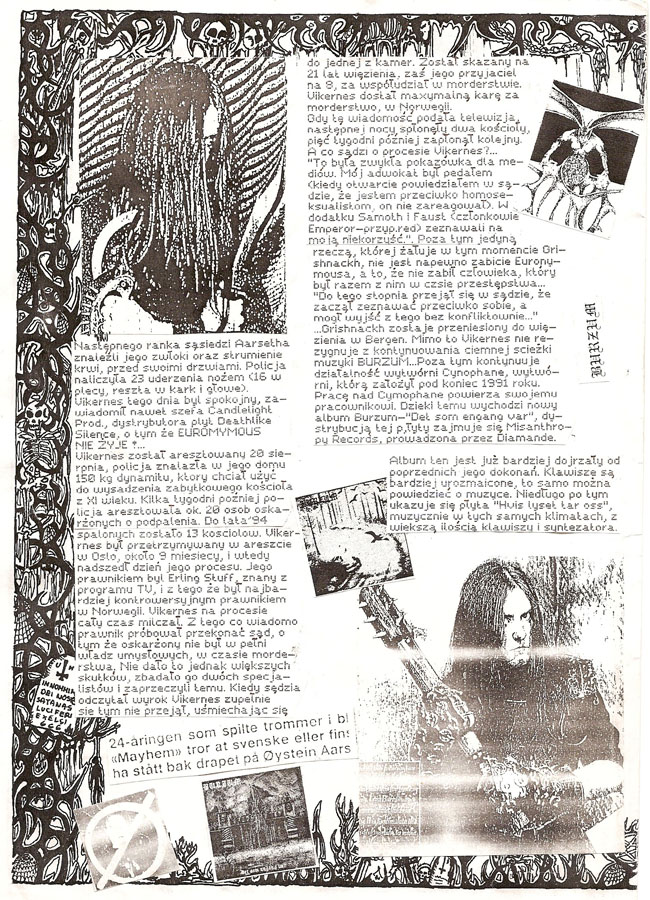 Następnego ranka sąsiedzi Aarsetha
znaleźli jego zwłoki oraz strumienie
krwi, przed swoimi drzwiami. Policja
naliczyła 23 uderzenia nożem (16 w
plecy, reszta w kark i głowę).
Vikernes tego dnia był spokojny, za-
wiadomił nawet szefa Candlelight
Prod., dystrybutora płyt Deathlike
Silence, o tym że EUROMYMOUS
NIE ŻYJE !...
Vikernes został aresztowany 20 sie-
rpnia, policja znalazła w jego domu
150 kg dynamitu, który chciał użyć
do wysadzenia zabytkowego kościoła
z XI wieku. Kilka tygodni później po-
licja aresztowała ok. 20 osób oska-
rżonych o podpalenia. Do lata'94
spalonych zostało 13 kościołów. Viker-
nes był przetrzymywany w areszcie
w Oslo, około 9 miesięcy, i wtedy
nadszedł dzień jego procesu. Jego
prawnikiem był Erling Stuff, znany z
programu TV, i z tego że był najba-
rdziej kontrowersyjnym prawnikiem
w Norwegii. Vikernes na procesie
cały czas milczał. Z tego co wiadomo
prawnik próbował przekonać sąd, o
tym że oskarżony nie był w pełni
władz umysłowych, w czasie morde-
rstwa, Nie dało to jednak większych
skutków, zbadało go dwóch specja-
listów i zaprzeczyli temu. Kiedy sędzia
odczytał wyrok Vikernes zupełnie
się tym nie przejął, uśmiechając się
do jednej z kamer. Został skazany na
21 lat więzienia, zaś jego przyjaciel
na 8, za współudział w morderstwie.
Vikernes dostał maxymalną karę za
morderstwo, w Norwegii.
Gdy tę wiadomość podała telewizja,
następnej nocy spłonęły dwa kościoły,
pięć tygodni później zapłonął kolejny.
A co sądzi o procesie Vikernes?...
"To była zwykła pokazówka dla me-
diów. Mój adwokat był pedałem
(kiedy otwarcie powiedziałem w są-
dzie, że jestem przeciwko homose-
ksualistom, on nie zareagował). W
dodatku Samoth i Faust (członkowie
Emperor-przyp.red) zeznawali na
moją niekorzyść.". Poza tym jedyną
rzeczą, której żałuje w tym momencie Gri-
shnackh, nie jest napewno zabicie Eurony-
mousa, a to, że nie zabił człowieka, który
był razem z nim w czsie przestępstwa...
"Do tego stopnia przejął się w sądzie, że
zaczął zeznawać przeciwko sobie, a
mógł wyjść z tego bez konfliktownie..."
...Grishnackh zostaje przeniesiony do wię-
zienia w Bergen. Mimo to Vikernes nie re-
zygnuje z kontynuowania ciemnej ścieżki
muzyki BURZUM...Poza tym kontynuuje
działalność wytwórni Cynophane, wytwó-
rni, którą założył pod koniec 1991 roku.
Pracę nad Cymophane powierza swojemu
pracownikowi. Dzięki temu wychodzi nowy
album Burzum-"Det som engang var", dy-
strybucją tej płyty zajmuje się Misanthro-
py Records, prowadzona przez Diamande.
Album ten jest już bardziej dojrzały od
poprzednich jego dokonań. Klawisze są
bardziej urozmaicone, to samo można
powiedzieć o muzyce. Niedługo po tym
ukazuje się płyta "Hvis lyset tar oss",
muzycznie w tych samych klimatach, z
większą ilością klawiszy i syntezatora.
BURZUM
IN NOMINE
DEI NOSTRI
SATANAS
LUCIFERI
EXCELSI
666
24-åringen som spilte trommer i bl
«Mayhem» tror at svenske eller fins
ha stått bak drapet på Øystein Aars
BURZUM